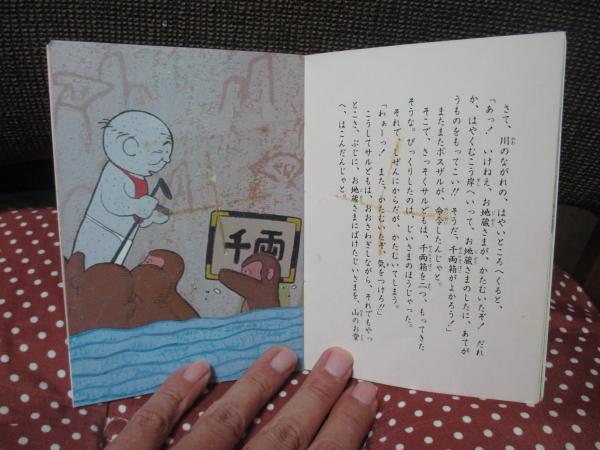 さて、川のながれの、はやいところへくると、
「あっ！　いけねえ、お地蔵さまが、かたむいたぞ！　だれ
か、はやくむこう岸へいって、お地蔵さまのしたに、あてが
うものをもってこい!!　そうだ、千両箱がよかろう!!」
またまたボスザルが、命令したんじゃと。
そこで、さっそくサルどもは、千両箱を二つ、もってきた
そうな。びっくりしたのは、じいさまのほうじゃった。
それで、しぜんにからだが、かたむいてしまう。
「わぁーっ！　また、かたむいたぞ、気をつけろ!!」
こうしてサルどもは、おおさわぎしながら、それでもやっ
とこさ、ぶじに、お地蔵さまにばけたじいさまを、山のお堂
へ、はこんだんじゃと。
千両